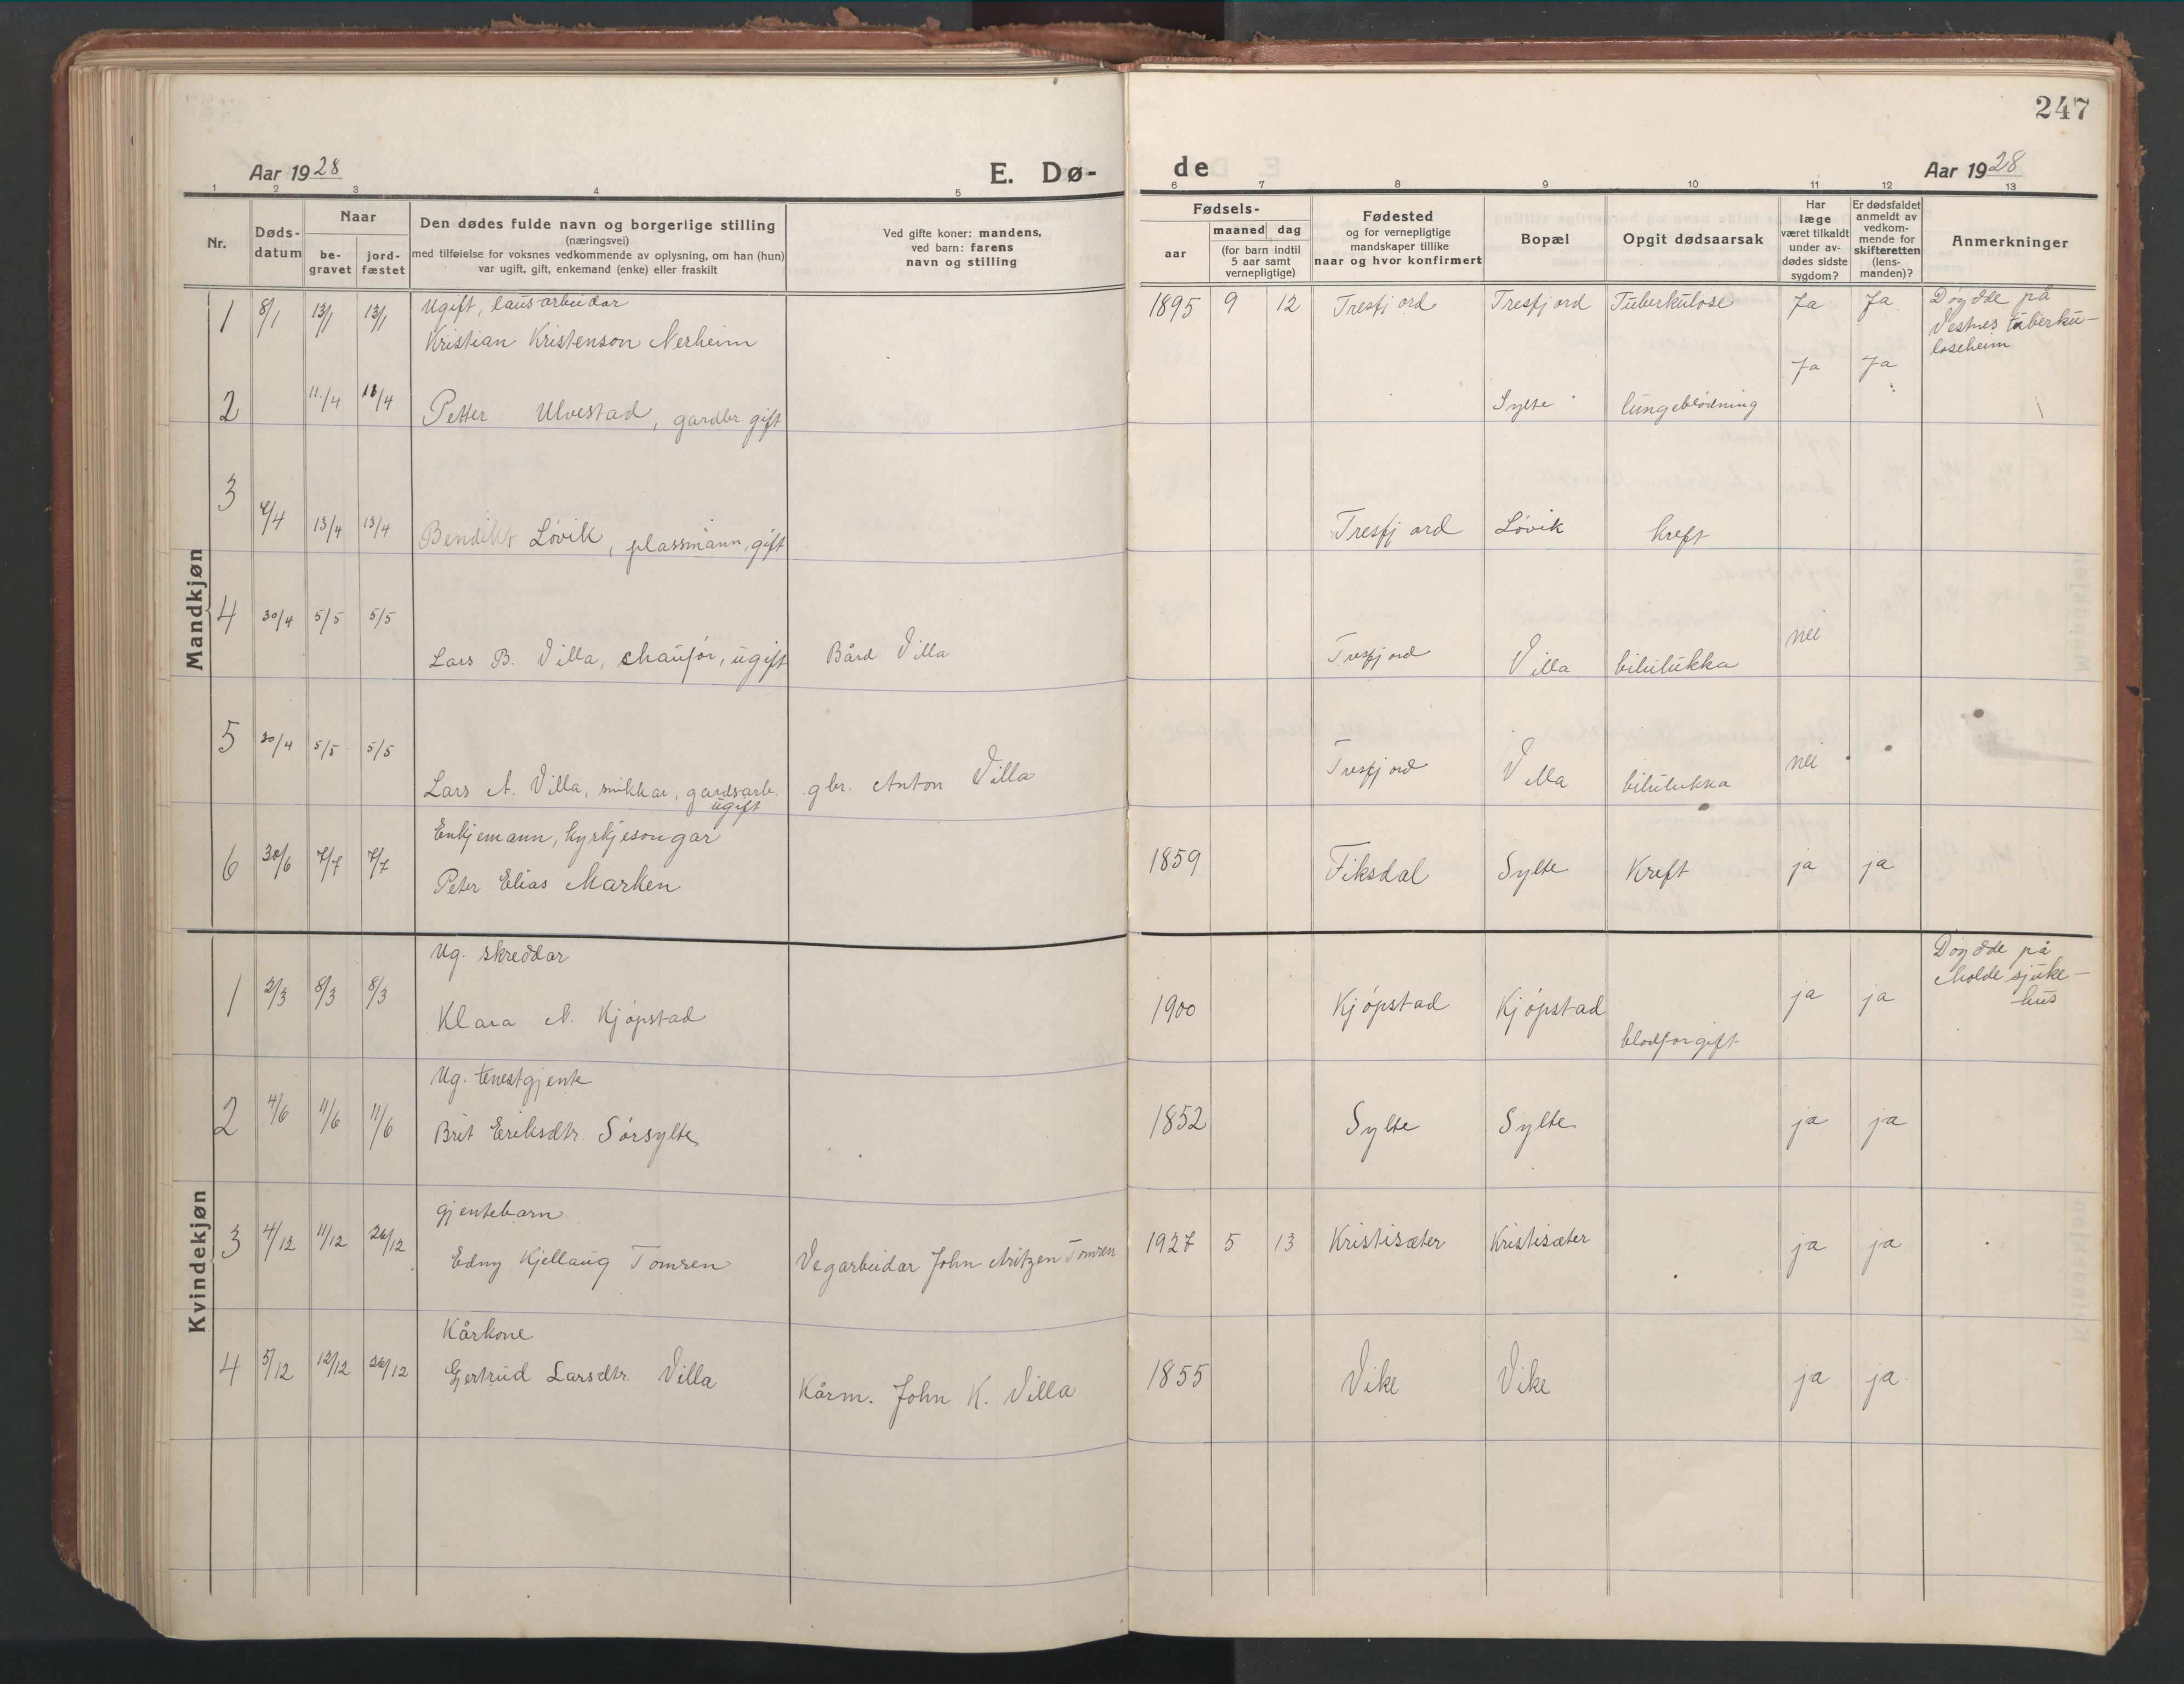 247
Aar 1928
E. Dø-
de
Aar 1928
1 2 3 4 5 6 7 8 9 10 11 12 13
Nr.
Døds-
datum
Naar
be-
gravet
jord-
fæstet
Den dødes fulde navn og borgerlige stilling
(næringsvei)
med tilføielse for voksnes vedkommende av oplysning, om han (hun)
var ugift, gift, enkemand (enke) eller fraskilt
Ved gifte koner: mandens,
ved barn: farens
navn og stilling
Fødsels-
aar
maaned dag
(for barn indtil
5 aar samt
vernepligtige)
Fødested
og for vernepligtige
mandskaper tillike
naar og hvor konfirmert
Bopæl
Opgit dødsaarsak
Har
læge
været tilkaldt
under av-
dødes sidste
sygdom?
Er dødsfaldet
anmeldt av
vedkom-
mende for
skifteretten
(lens-
manden)?
Anmerkninger
Mandkjøn
1 8/1 13/1 13/1 Ugift, lausarbeidar
Kristian Kristenson Nerheim
1895 9 12 Tresfjord Tresfjord Tuberkulose Ja Ja Døydde på
Vestnes tuberku-
loseheim
2 11/4 11/4 Petter Ulvestad, gardbr. gift
Sylte lungeblødning Ja Ja
3 4/4 13/4 13/4 Bendikt Løvik, plassmann, gift
Tresfjord Løvik kreft
4 30/4 5/5 5/5 Lars B. Villa, chaufør, ugift Bård Villa
Tresfjord Villa bilulukka nei
5 30/4 5/5 5/5 Lars A. Villa, snikkar, gardsarb.
ugift
gbr. Anton Villa
Tresfjord Villa bilulukka nei
6 30/6 7/7 7/7 Enkjemann, kyrkjesongar
Peter Elias Marken
1859 Fiksdal Sylte Kreft ja ja
Kvindekjøn
1 2/3 8/3 8/3 Ug. skreddar
Klara A. Kjøpstad
1900 Kjøpstad Kjøpstad blodforgift ja ja Døydde på
Molde sjuke-
hus
2 4/6 11/6 11/6 Ug. tenestgjente
Brit Eriksdtr. Sørsylte
1852 Sylte Sylte ja ja
3 4/12 11/12 26/12 gjentebarn
Edny Kjellaug Tomren Vegarbeidar John Aritzen Tomren
1927 5 13 Kristisæter Kristisæter ja ja
4 5/12 12/12 26/12 Kårkone
Gjertrud Larsdtr. Villa Kårm. John K. Villa
1855 Vike Vike ja ja